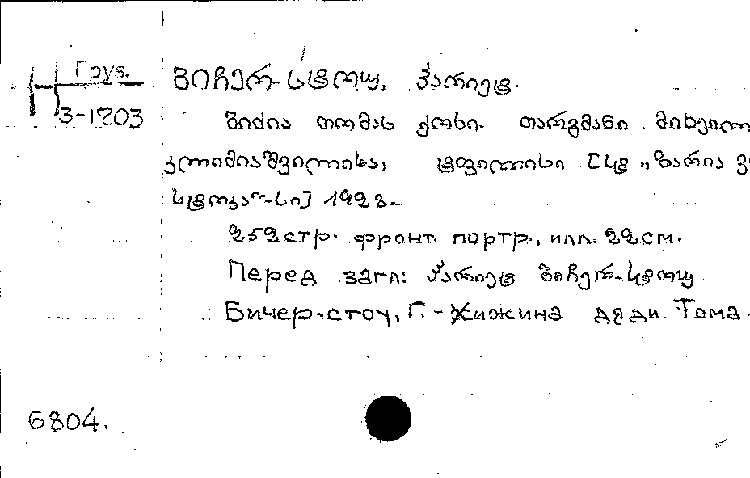 Груз.
3-1203
ბიჩერ-სტოუ, ჰარიეტ.
ბიძია თომას ქოხი. თარგმანი მიხეილ
კლიმიაშვილისა, ტფილისი [სტ. „ზარია ვ
სტოკა"-სი] 1923.-
252стр. фронт. портр., илл. 22см.
Перед загл: ჰარიეტ ბიჩერ-სტოუ
Бичер-стоу, Г. - Хижина дяди Тома.
6804.